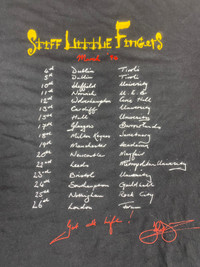 Stiff Little Fingers
March '94
4th Dublin Tivoli
5th Dublin Tivoli
10th Sheffield University
11th Norwich U E A
12th Wolverhampton Civic Hall
13th Cardiff University
15th Hull University
17th Glasgow Barrowlands
18th Milton Keynes Sanctuary
19th Manchester Academy
20th Newcastle Mayfair
22nd Leeds Metropolitan University
23rd Bristol University
24th Southampton Guildhall
25th Nottingham Rock City
26th London Forum
Get a life!